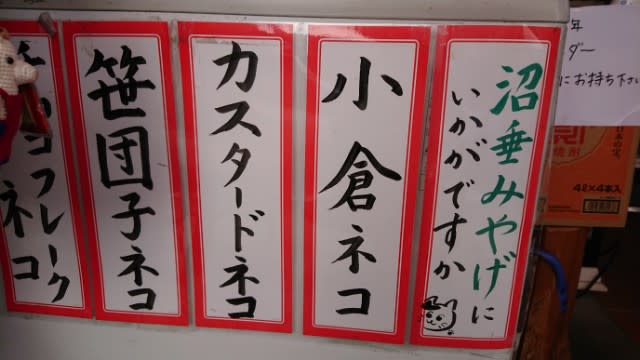 沼垂みやげに
いかがですか
小倉ネコ
カスタードネコ
笹団子ネコ
チョコフレーク
ネコ
年
ダー
にお持ち下さい
4ℓ×4本入